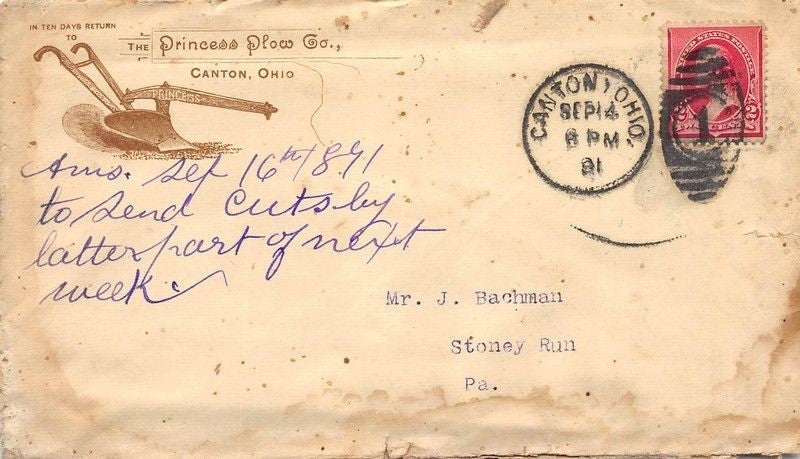 IN TEN DAYS RETURN
TO
THE Princess Plow Co.,
CANTON, OHIO
PRINCESS
CANTON, OHIO.
SEP 14
6 PM
91
UNITED STATES POSTAGE
2 2
1
Ans. Sep 16th 1891
to send cuts by
latter part of next
week
Mr. J. Bachman
Stoney Run
Pa.